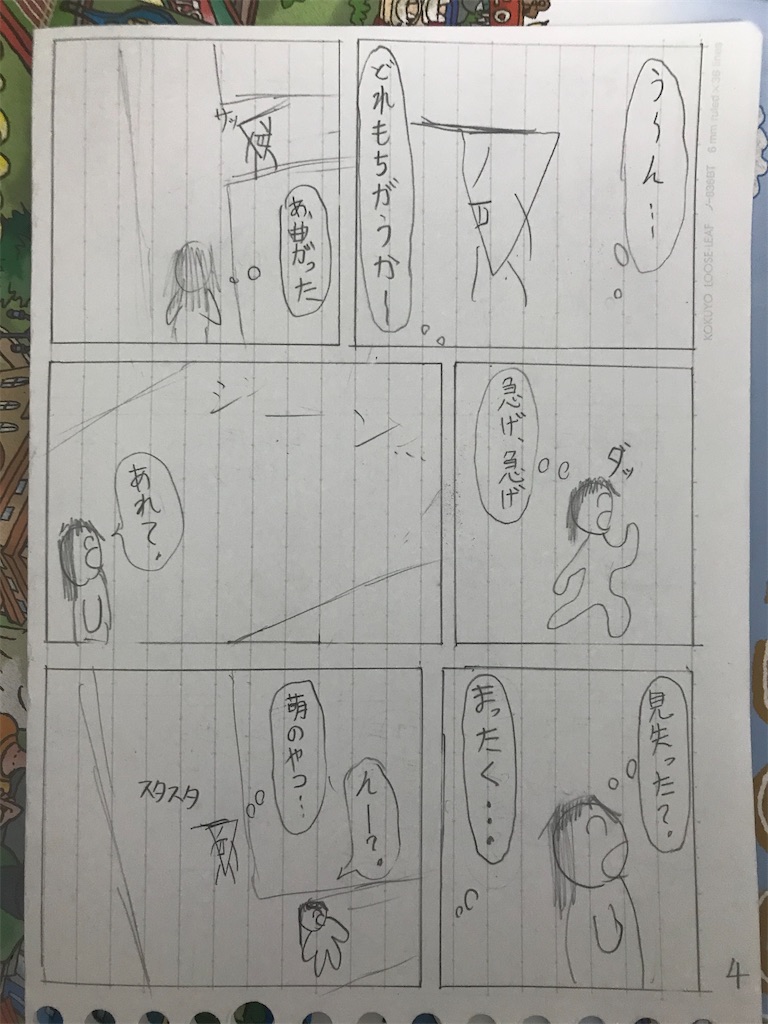 う〜ん…
どれもちがうかー
サッ
あ、曲がった
ダッ
急げ、急げ
シーン…
あれ?
見失った?
まったく…。
んー?
萌のやつ…
スタスタ
4
KOKUYO LOOSE-LEAF ノ-836BT 6 mm ruled × 36 lines